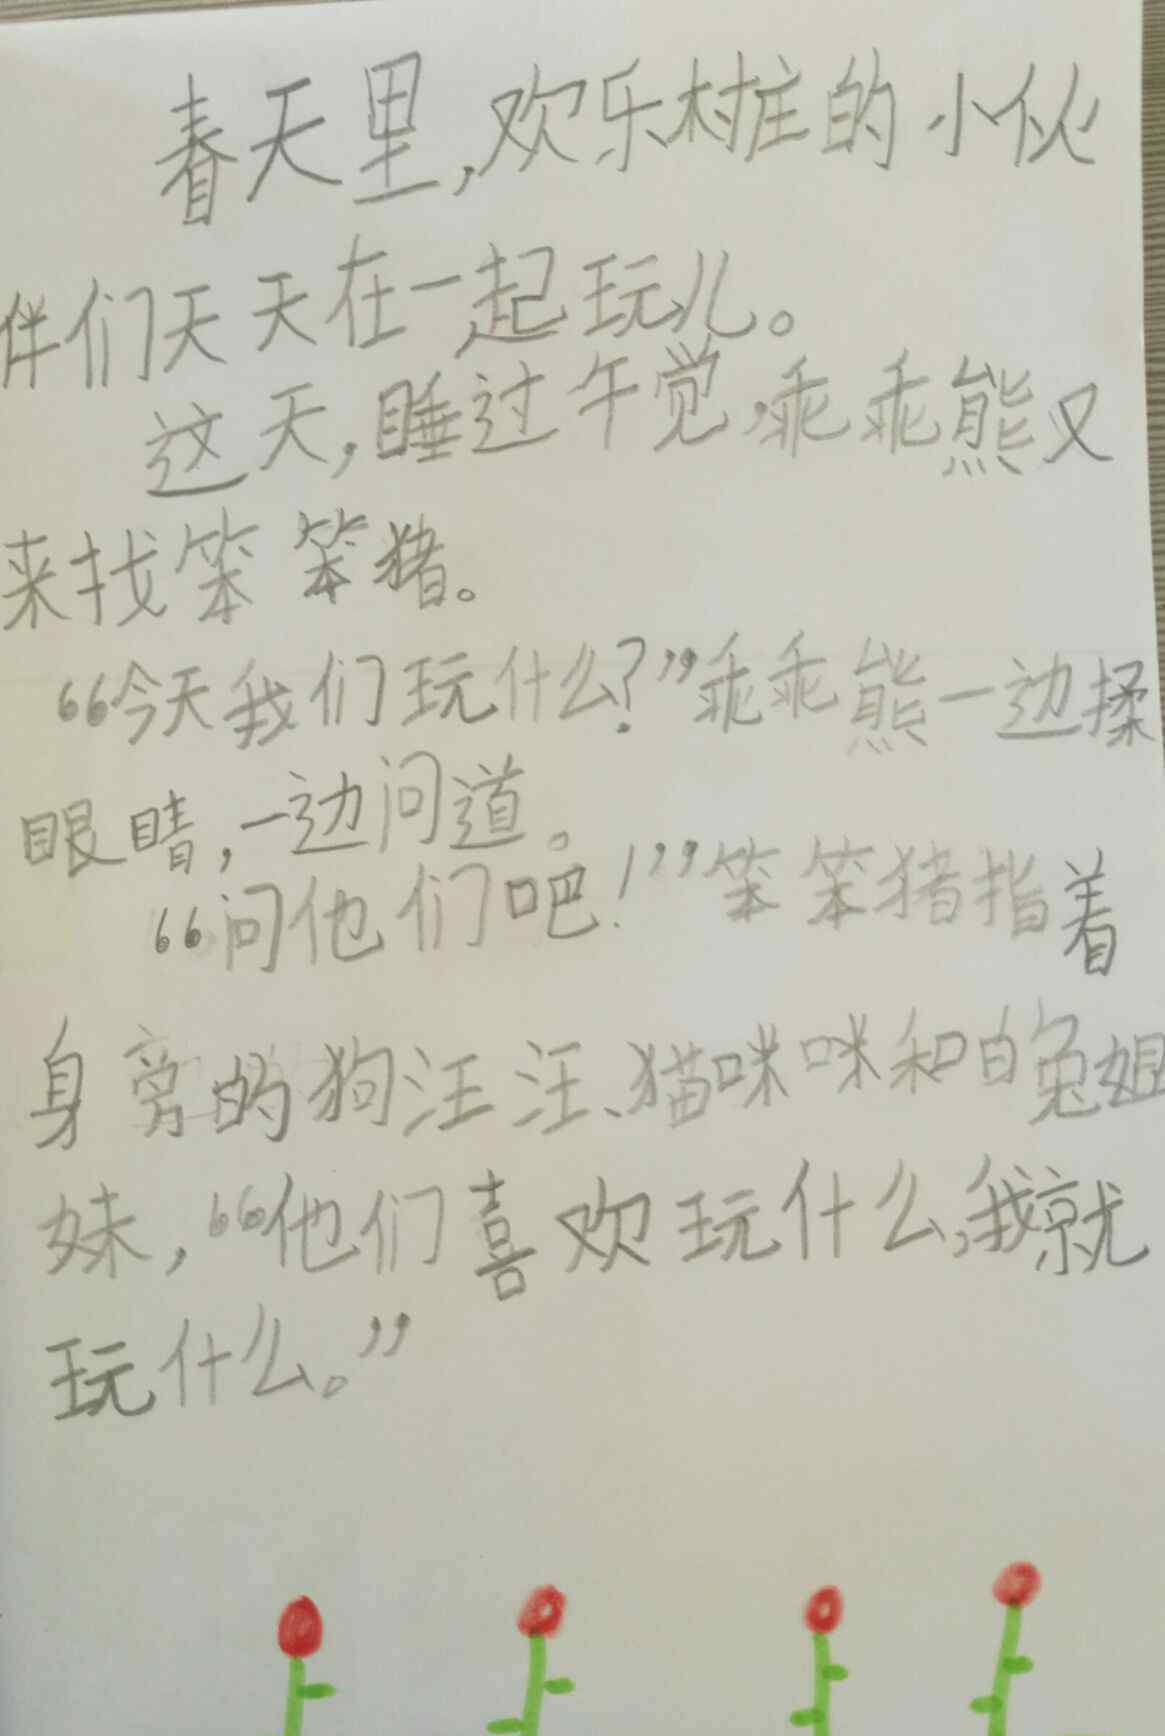 春天里,欢乐村庄的小伙
伴们天天在一起玩儿。
这天,睡过午觉,乖乖熊又
来找笨笨猪。
“今天我们玩什么?”乖乖熊一边揉
眼睛,一边问道。
“问他们吧!”笨笨猪指着
身旁的狗汪汪、猫咪咪和白兔姐
妹,“他们喜欢玩什么,我就
玩什么。”